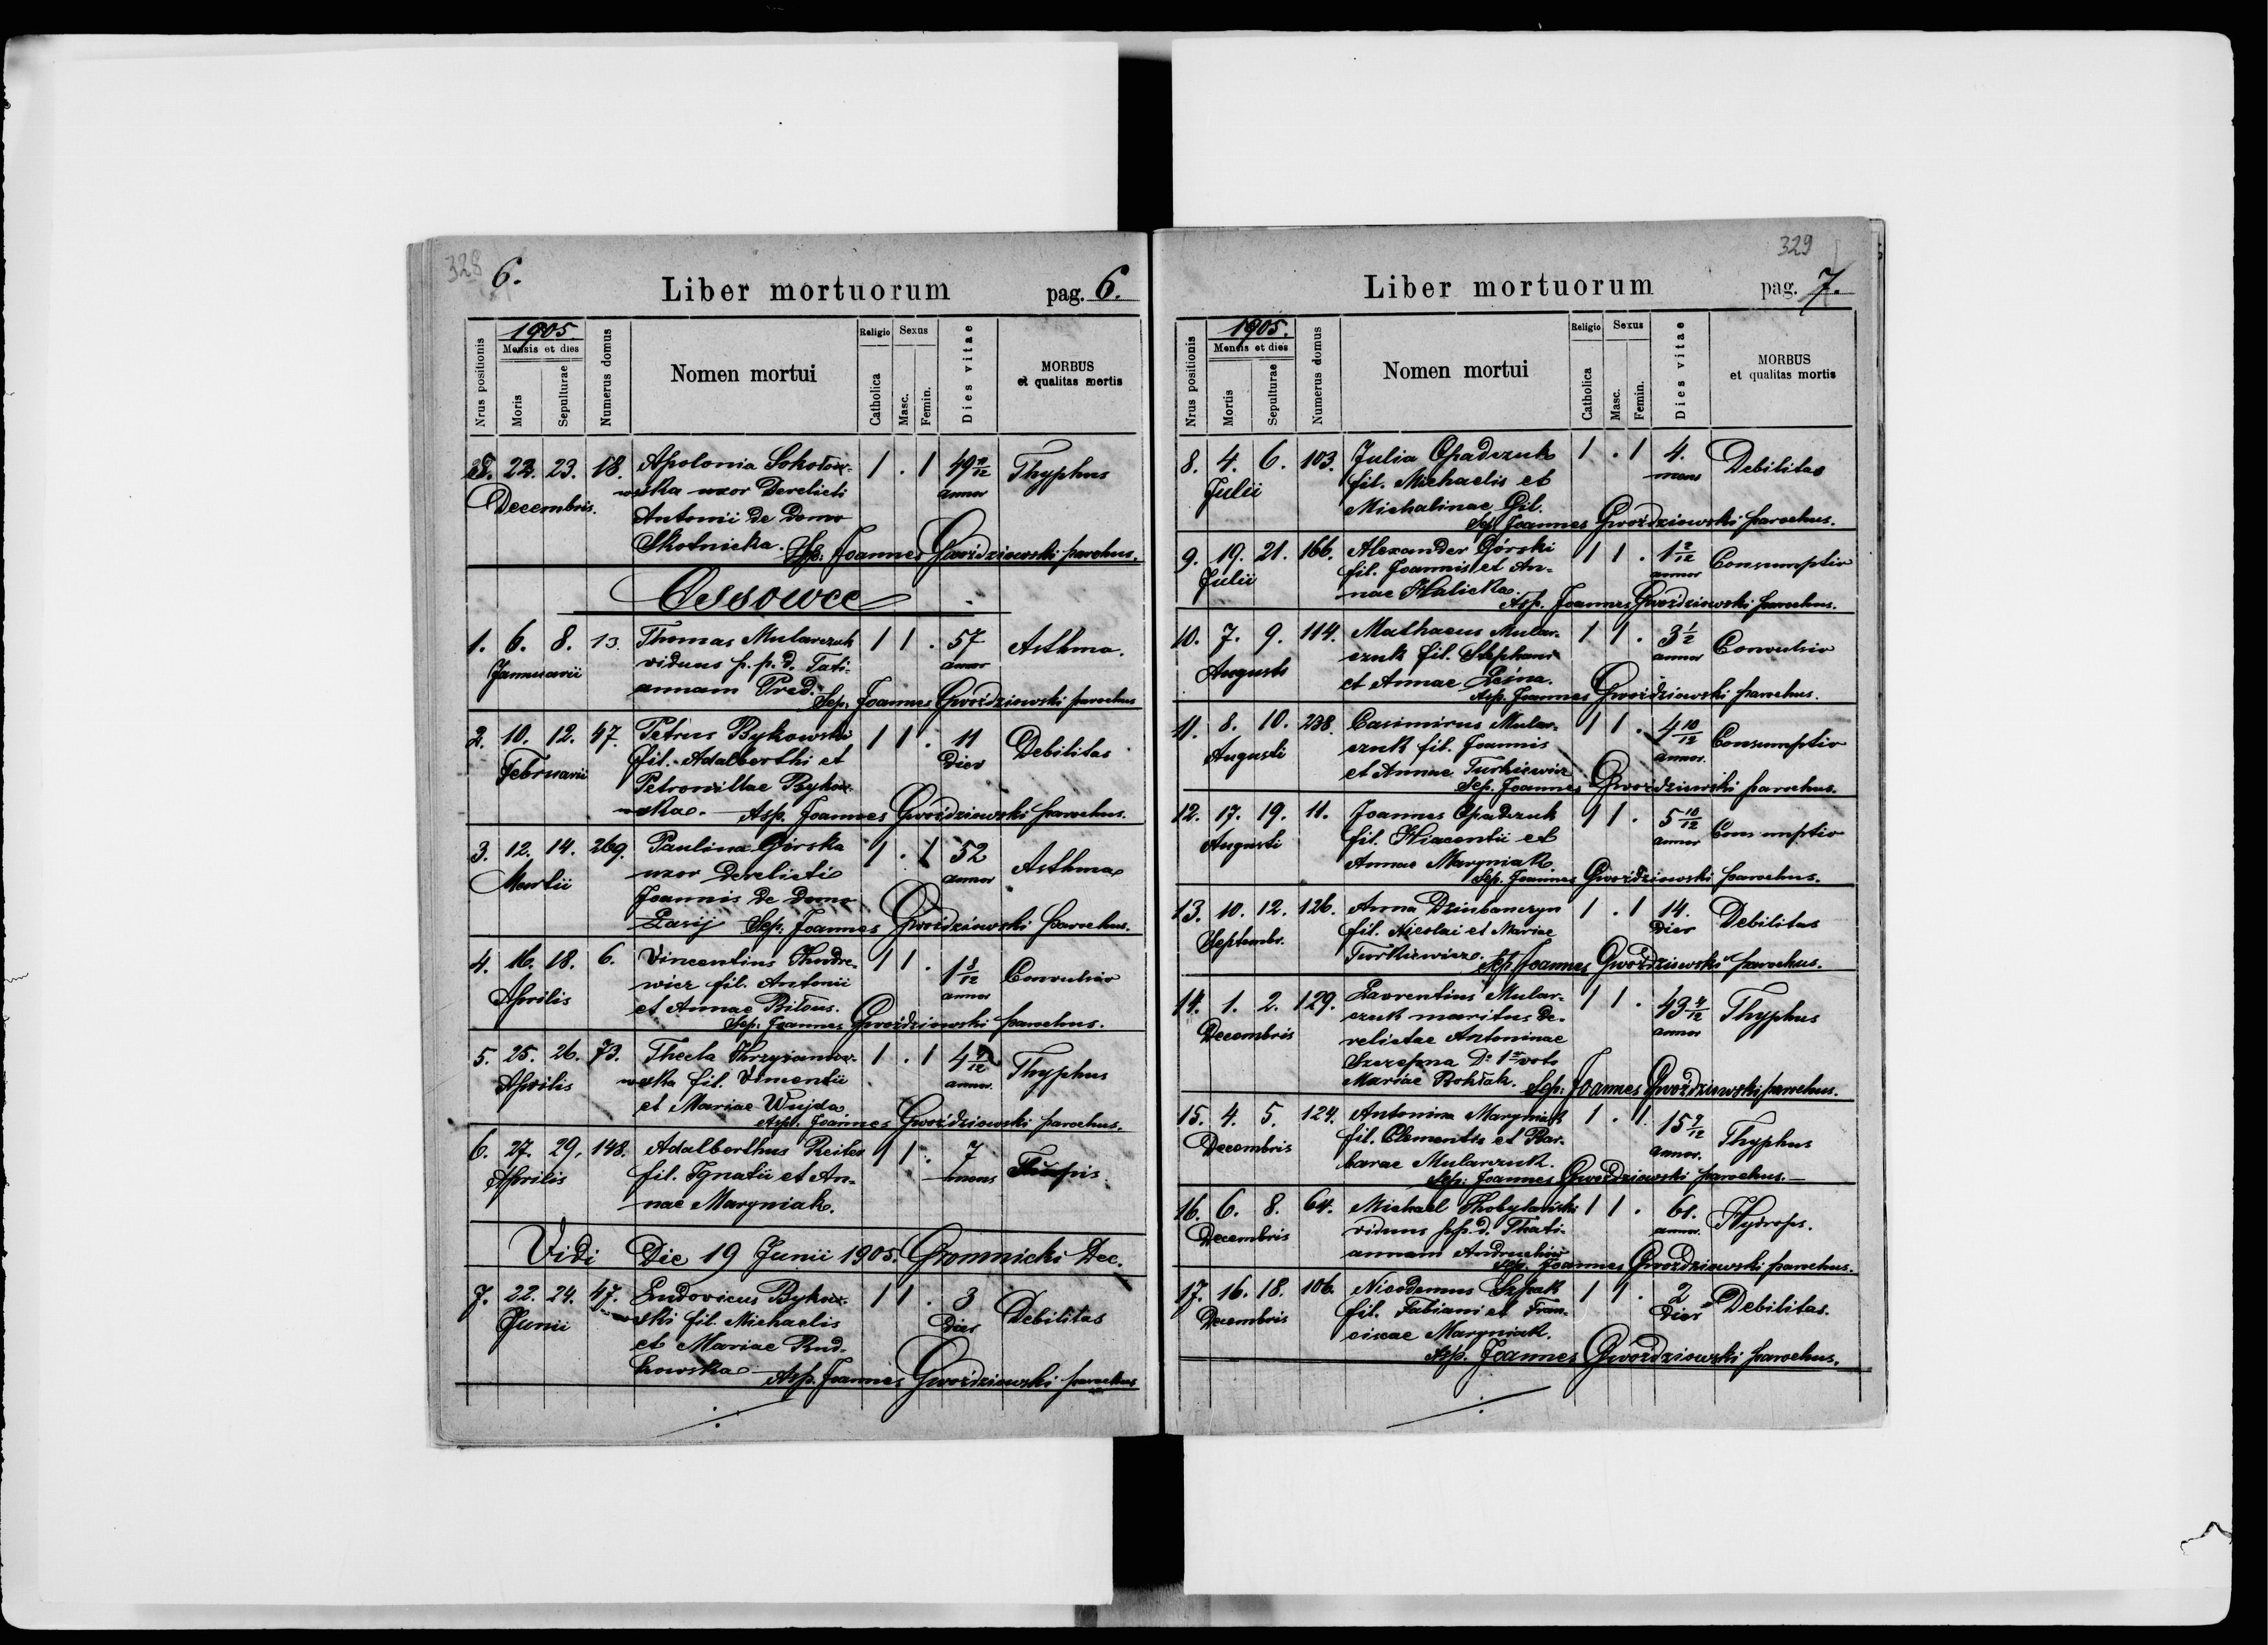 328 6.
Liber mortuorum pag. 6.
Nrus positionis 1905. Mensis et dies Moris Sepulturae Numerus domus Nomen mortui Religio Catholica Sexus Masc. Femin. Dies vitae MORBUS et qualitas mortis
8. 22. 23. 18. Apolonia Sokołow- 1 . 1 49 Thyphus
Decembris. wska uxor derelicti annor
Antonii de domo
Skotnicka. Sep. Joannes Gwoździowski parochus.
Ossowce
1. 6. 8. 13. Thomas Mularczuk 1 1 . 57 Asthma.
Januarii viduus p. p. d. Tati- annor
annam Pred. Sep. Joannes Gwoździowski parochus
2. 10. 12. 47. Petrus Bykowski 1 1 . 11 Debilitas
Februarii fil. Adalberthi et dier
Petronillae Bykow-
wska. Asp. Joannes Gwoździowski parochus.
3. 12. 14. 269. Paulina Górska 1 . 1 52 Asthma
Martii uxor derelicti annor
Joannis de domo
Łasij Sep. Joannes Gwoździowski parochus.
4. 16. 18. 6. Vincentius 1 1 . 1 8/12 Convulsio
Aprilis wicz fil. Antonii annor
et Annae Biłous.
Sep. Joannes Gwoździowski parochus.
5. 25. 26. 73. Thecla Khrzyżanow- 1 . 1 4 Thyphus
Aprilis wska fil. Vincentii annor.
et Mariae Wujda.
Asp. Joannes Gwoździowski parochus.
6. 27. 29. 148. Adalberthus Reiter 1 1 . 7
Aprilis fil. Ignatii et An- mens
nae Maryniak.
Vidi Die 19 Junii 1905. Gromnicki Dec.
7. 22. 24. 47. Ludovicus Bykow- 1 1 . 3 Debilitas
Junii wski fil. Michaelis dier
et Mariae Rud-
kowska Asp. Joannes Gwoździowski parochus
329
Liber mortuorum pag. 7.
Nrus positionis 1905. Mensis et dies Mortis Sepulturae Numerus domus Nomen mortui Religio Catholica Sexus Masc. Femin. Dies vitae MORBUS et qualitas mortis
8. 4. 6. 103. Julia Opadczuk 1 . 1 4. Debilitas
Julii fil. Michaelis et mens
Michalinae Gil.
Sep. Joannes Gwoździowski parochus.
9. 19. 21. 166. Alexander Górski 1 1 . 1 2/12 Consumptio
Julii fil. Joannis et An- annor
nae Halicka.
Asp. Joannes Gwoździowski parochus.
10. 7. 9. 114. Mathaeus Mular- 1 1 . 3 1/2 Convulsio
Augusti czuk fil. Stephani annor
et Annae Leśna.
Asp. Joannes Gwoździowski parochus.
11. 8. 10. 238. Casimirus Mular- 1 1 . 4 10/12 Consumptio
Augusti czuk fil. Joannis annor.
et Annae Turkiewicz
Sep. Joannes Gwoździowski parochus.
12. 17. 19. 11. Joannes Opadczuk 1 1 . 5 10/12 Consumptio
Augusti fil. Hiacentii et annor
Annae Maryniak
Sep. Joannes Gwoździowski parochus.
13. 10. 12. 126. Anna Dziubanczyn 1 . 1 14. Debilitas
Septembr. fil. Nicolai et Mariae dier
Turkiewicz. Asp. Joannes Gwoździowski parochus.
14. 1. 2. 129. Lavrentius Mular- 1 1 . 43 Thyphus
Decembris czuk maritus de- annor
relictae Antoninae
Szczepna voto
Mariae Bohdak. Sep. Joannes Gwoździowski parochus.
15. 4. 5. 124. Antonina Maryniak 1 . 1. 15 Thyphus
Decembris fil. Clementis et Bar- annor.
barae Mularczuk.
Sep. Joannes Gwoździowski parochus.
16. 6. 8. 64. Michael 1 1 . 61. Hydrops.
Decembris viduus p.p.d. Thati- annor.
annam Andruchów
Sep. Joannes Gwoździowski parochus.
17. 16. 18. 106. Nicodemus Szpak 1 1 . 2 Debilitas.
Decembris fil. Fabiani et Fran- dier
ciscae Maryniak.
Asp. Joannes Gwoździowski parochus.